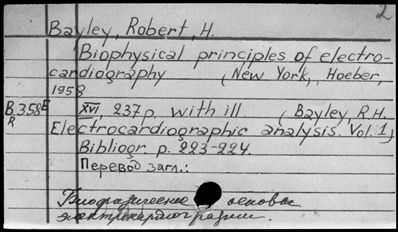 2
Bayley, Robert, H.
Biophysical principles of electro-
cardiography (New York, Hoeber,
1958
B358E XVI, 237p. with ill. (Bayley, R.H.
R
Electrocardiographic analysis. Vol. 1)
Bibliogr. p. 223-224.
Перевод загл.:
Биофизические основы
электрокардиографии.